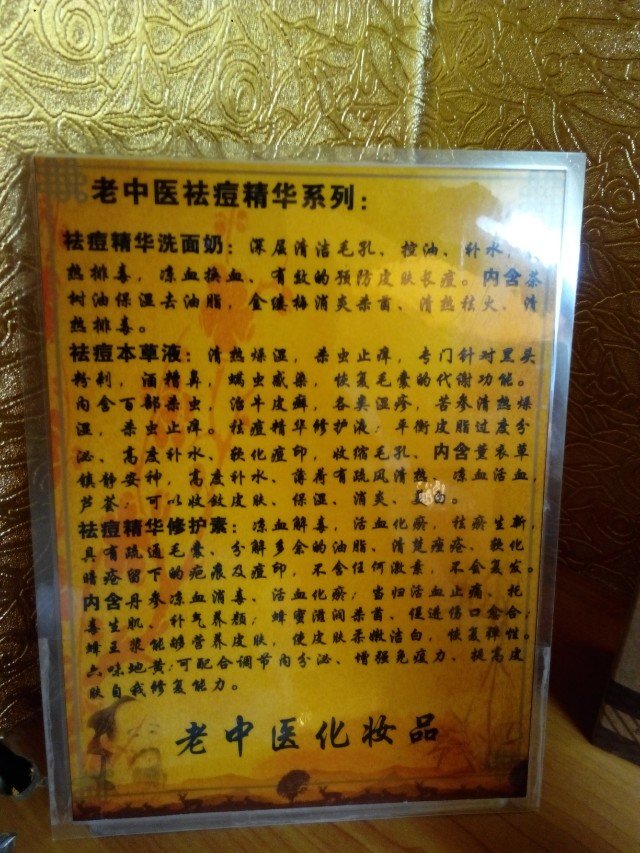 老中医祛痘精华系列：
祛痘精华洗面奶：深层清洁毛孔、控油、补水，
热排毒，凉血换血、有效的预防皮肤长痘。内含茶
树油保湿去油脂，金缕梅消炎杀菌、清热祛火、清
热排毒。
祛痘本草液：清热燥湿，杀虫止痒，专门针对黑头
粉刺，酒糟鼻，螨虫感染，恢复毛囊的代谢功能。
内含百部杀虫，治牛皮癣，各类湿疹，苦参清热燥
湿，杀虫止痒。祛痘精华修护液：平衡皮脂过度分
泌、高度补水、软化痘印，收缩毛孔、内含薰衣草
镇静安神，高度补水、薄荷有疏风清热，凉血活血，
芦荟，可以收敛皮肤、保湿、消炎、美白。
祛痘精华修护素：凉血解毒，活血化瘀，祛瘀生新，
具有疏通毛囊、分解多余的油脂、清楚痤疮、软化
暗疮留下的疤痕及痘印，不含任何激素，不会复发。
内含丹参凉血消毒、活血化瘀；当归活血止痛、托
毒生肌、补气养颜；蜂蜜滋润杀菌、促进伤口愈合；
蜂王浆能够营养皮肤，使皮肤柔嫩洁白，恢复弹性。
六味地黄；可配合调节内分泌、增强免疫力、提高皮
肤自我修复能力。
老中医化妆品